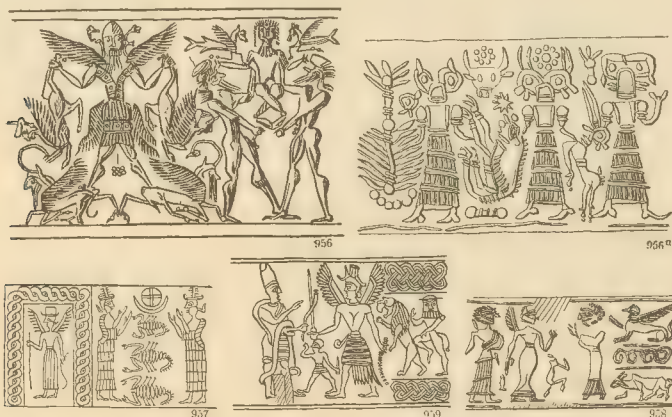 956
956ᵃ
957
959
958